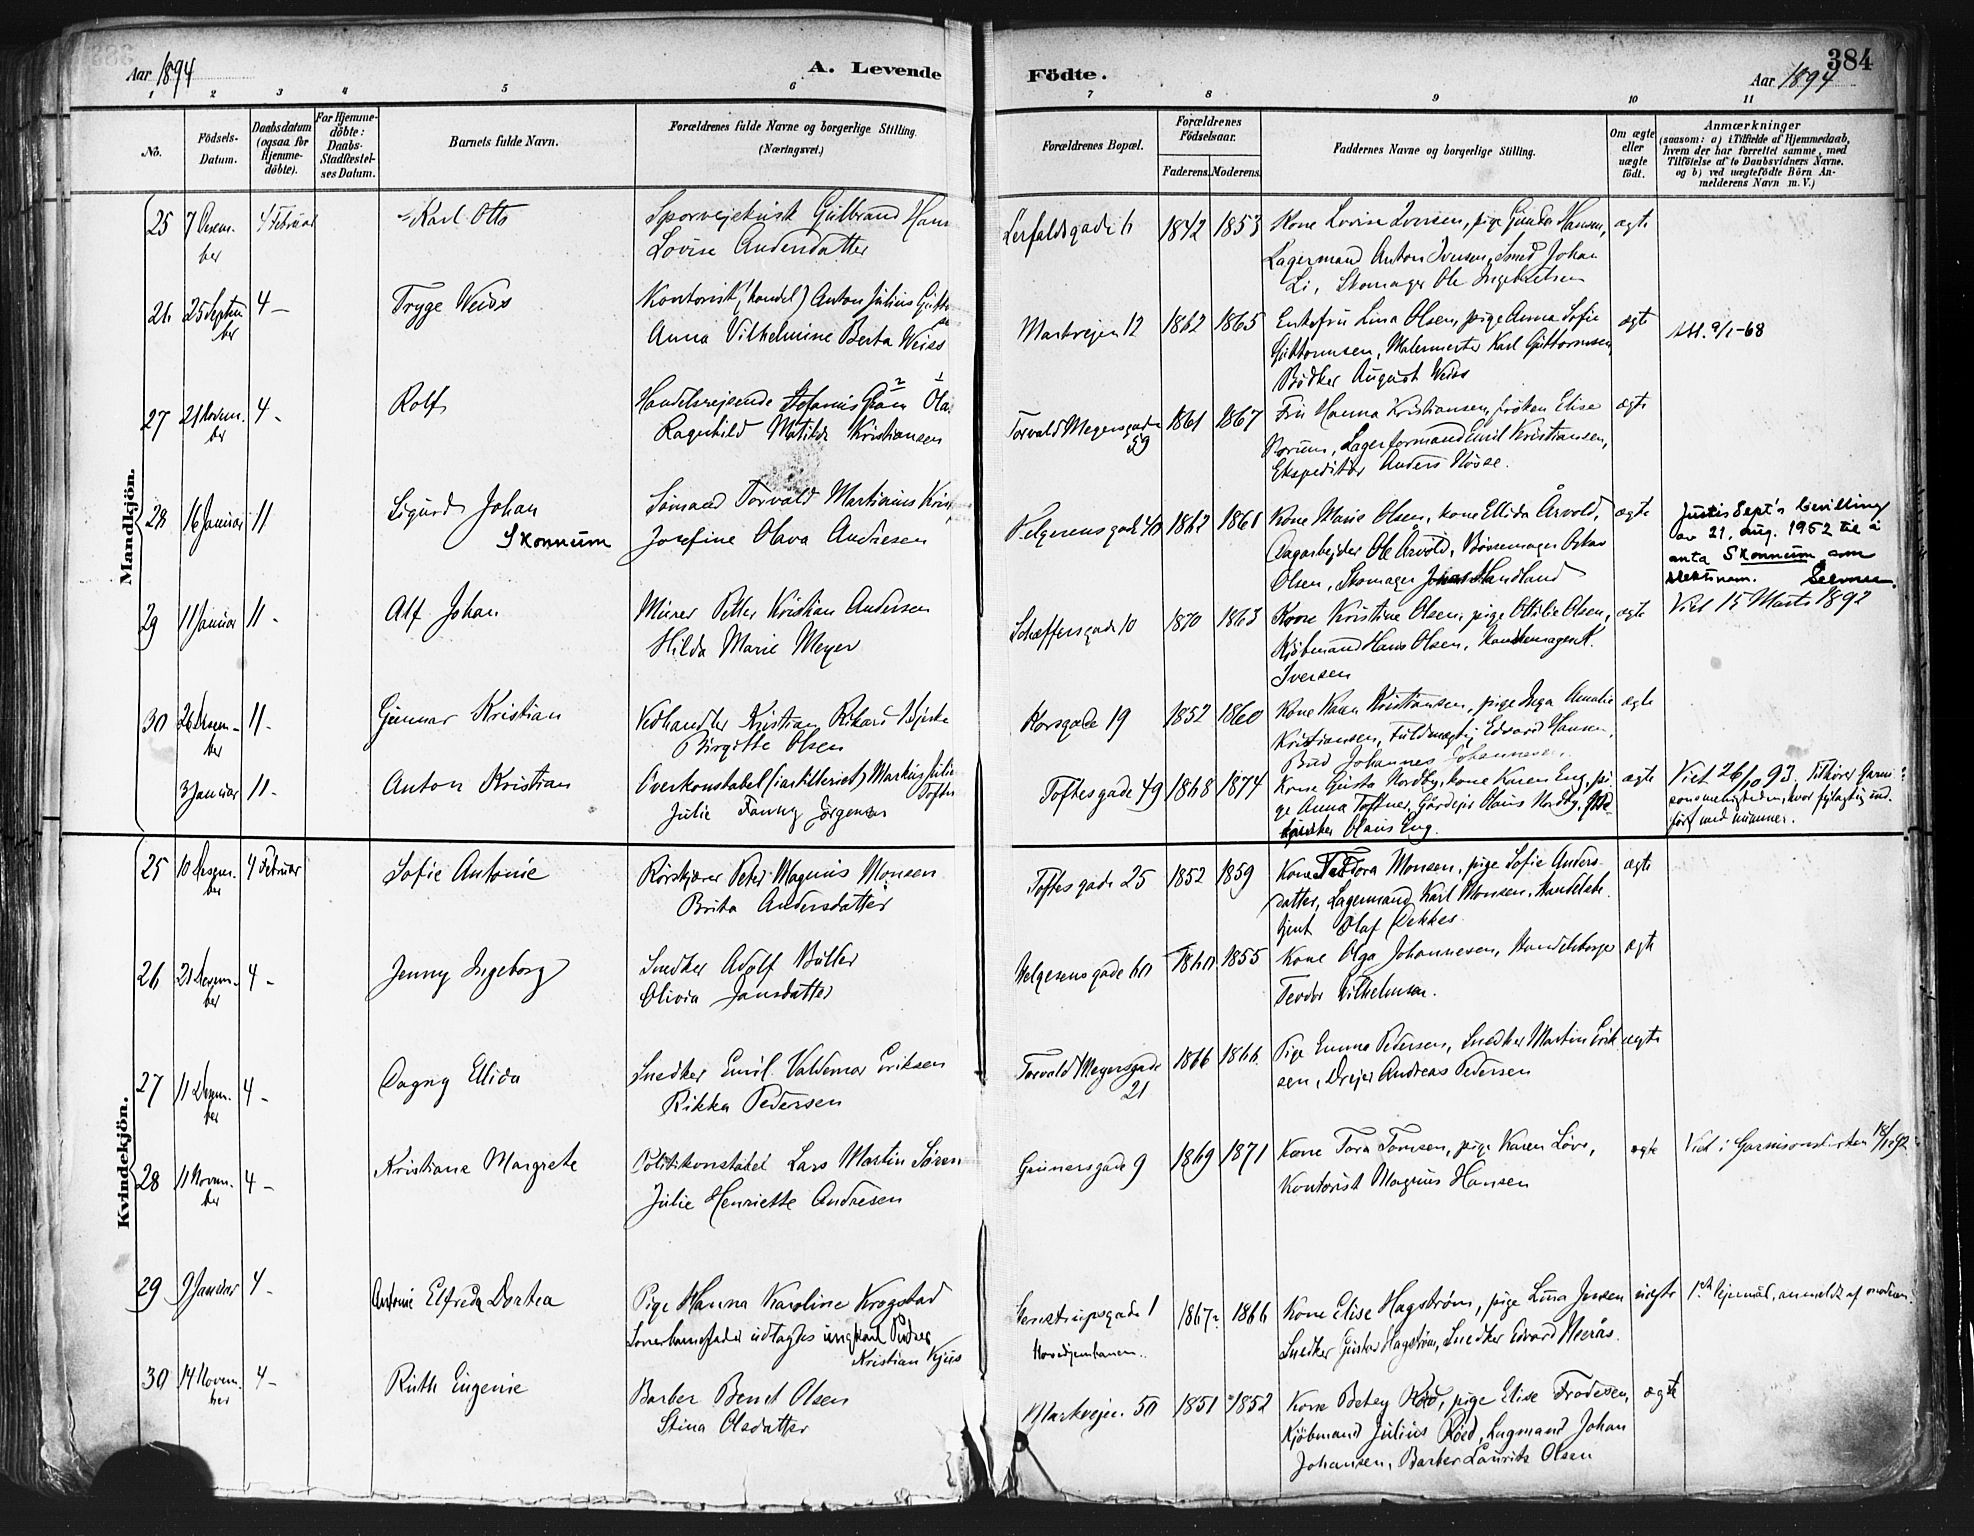 384
Aar 1894
A. Levende
Födte.
Aar 1894
1 2 3 4 5 6 7 8 9 10 11
No.
Födsels-Datum.
Daabsdatum (ogsaa for Hjemme-döbte).
For Hjemme-döbte: Daabs-Stadfæstel-ses Datum.
Barnets fulde Navn.
Forældrenes fulde Navne og borgerlige Stilling.
(Næringsvei.)
Forældrenes Bopæl.
Forældrenes Födselsaar.
Faderens. Moderens.
Faddernes Navne og borgerlige Stilling.
Om ægte eller uægte födt.
Anmærkninger
(saasom: a) i Tilfælde af Hjemmedaab, hvem der har forrettet samme, med Tilföielse af to Daabsvidners Navne, og b) ved uægtefödte Börn An-melderens Navn m. V.)
Mandkjön.
25 7 Desem-ber 4 Februar Karl Otto
Lovise Andersdatter
1842 1853 Kone Lovise Iversen, pige Gunda Hansen, ægte
Lagermand Anton Iversen, Smed Johan
Li, Skomager Ole Ingebretsen
26 25 Septem-ber 4 — Trygve Weiss
Kontorist (handel) Anton Julius
Anna Vilhelmine Berta Weiss
Markvejen 12 1862 1865 Enkefru Lina Olsen, pige Anna Sofie ægte
Guttormsen, Malermester Karl Guttormsen,
Bödker August Weiss
Att. 9/1-68
27 21 Novem-ber 4 - Rolf
Handelsrejsende
Ragnhild Matilde Kristiansen
Torvald Meyersgade 59 1861 1867 Fru Hanna Kristiansen, fröken Elise ægte
Norum, Lagerformand Emil Kristiansen,
Ekspeditör Anders
28 16 Januar 11 Sigurd Johan
Skonnum
Sömand Torvald Martinius
Josefine Olava Andresen
1862 1861 Kone Marie Olsen, kone Ellida Årvold, ægte
Dagarbejder Ole Årvold, Börsemager Oskar
Olsen, Skomager
Justis Dept's bevilling
av 21. aug. 1952 til å
anta Skonnum som
slektsnavn.
29 11 Januar 11 - Alf Johan
Murer Petter Kristian Andersen
Hilda Marie Meyer
Schæffersgade 10 1870 1863 Kone Kristine Olsen, pige Ottilie Olsen, ægte
Kjöbmand Hans Olsen,
Iversen
Viet 15 Marts 1892
30 26 Desem-ber 11 - Gunnar Kristian
Vedhandler Kristian Rikard
Birgitte Olsen
Korsgade 19 1852 1860 Kone Karen Kristiansen, pige Inga Amalie ægte
Kristiansen, Fuldmægtig Edvard Hansen,
Bud Johannes Johannesen
3 Januar 11 - Anton Kristian
Overkonstabel (i artilleriet) Markus Julius
Julie Fanny Jörgensen
Toftesgade 49 1868 1874 Kone Gusta Nordby, kone Karen Eng, pi- ægte
ge Anna Toftner, Gårdejer Olaus Nordby,
Olaus Eng.
Viet 26/10 93. Tilhörer Garni-
sonsmenigheden, hvor föjagtig ind-
fört med nummer.
Kvindekjön.
25 10 Desem-ber 4 Februar Sofie Antonie
Peter Magnus Monsen
Brita Andersdatter
Toftesgade 25 1852 1859 Kone Teodora Monsen, pige Sofie Anders- ægte
datter, Lagermand Karl Monsen, Handelsbe-
tjent Olaf
26 21 Desem-ber 4 - Jenny Ingeborg
Snedker Adolf Büller
Olivia Jansdatter
Helgesensgade 60 1860 1855 Kone Olga Johannesen, Handelsborger ægte
Teodor Vilhelmsen.
27 11 Desem-ber 4 - Dagny Ellida
Snedker Emil Valdemar Eriksen
Rikka Pedersen
Torvald Meyersgade 21 1866 1866 Pige Emma Pedersen, Snedker Martin Erik- ægte
sen, Drejer Andreas Pedersen
28 11 Novem-ber 4 - Kristiane Margrete
Politikonstabel Lars Martin Sören
Julie Henriette Andresen
Grünersgade 9 1869 1871 Kone Tora Tomsen, pige Karen Löve, ægte
Kontorist Magnus Hansen
Viet i Garnisonskirken
29 9 Januar 4 - Antonie Elfreda Dortea
Pige Hanna Karoline Krogstad
Som barnefader udlagtes ungkarl Peder
Kristian Kjus
Stenstrupsgade 1
Hovedjernbanen.
1867? 1866 Kone Elise Hagström, pige Lina Jensen uægte
Snedker Gustav Hagström, Snedker Edvard
1ste lejermål, anmeldt af moderen.
30 14 Novem-ber 4 - Ruth Eugenie
Barber Bernt Olsen
Stina Olsdatter
Markvejen 50 1851 1852 Kone Betsy Röed, pige Elise Frodesen, ægte
Kjöbmand Julius Röed, Lagmand Johan
Johansen, Barber Laurits Olsen